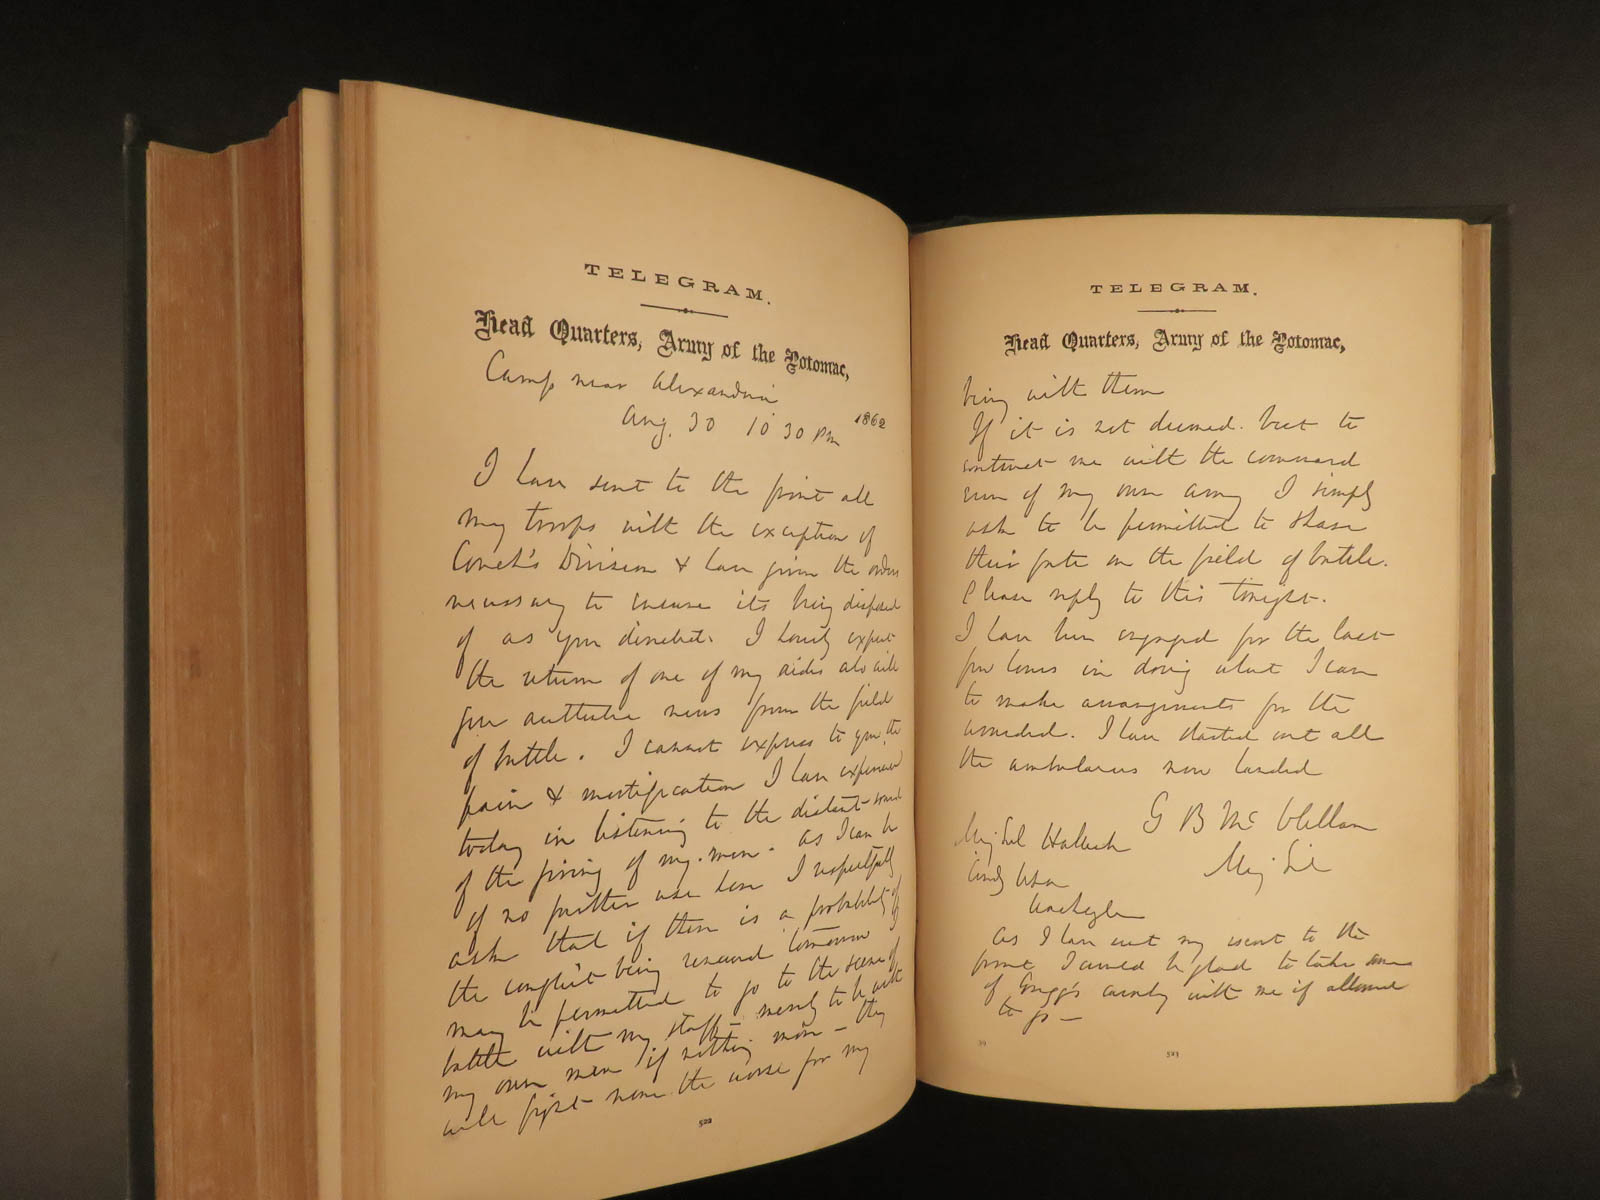 TELEGRAM.
Head Quarters, Army of the Potomac,
Camp near Alexandria
Aug. 30 10 30 PM 1862
I have sent to the front all
my troops with the exception of
Couch's Division & have given the orders
necessary to ensure its being disposed
of as you directed. I hourly expect
the return of one of my aides who will
give authentic news from the field
of battle. I cannot express to you the
pain & mortification I have experienced
today in listening to the distant sound
of the firing of my men. As I can be
of no further use here I respectfully
ask that if there is a probability of
the conflict being renewed tomorrow I
may be permitted to go to the scene of
battle with my staff - merely to be with
my own men if nothing more - they
will fight none the worse for my
522
TELEGRAM.
Head Quarters, Army of the Potomac,
being with them
If it is not deemed best to
entrust me with the command
even of my own army I simply
ask to be permitted to share
their fate on the field of battle.
Please reply to this tonight.
I have been engaged for the last
few hours in doing what I can
to make arrangements for the
wounded. I have started out all
the ambulances now landed
G B McClellan
Maj Genl
Maj Genl Halleck
Comdg USA
Washington
As I have sent my escort to the
front I would be glad to take some
of Gregg's cavalry with me if allowed
to go -
523